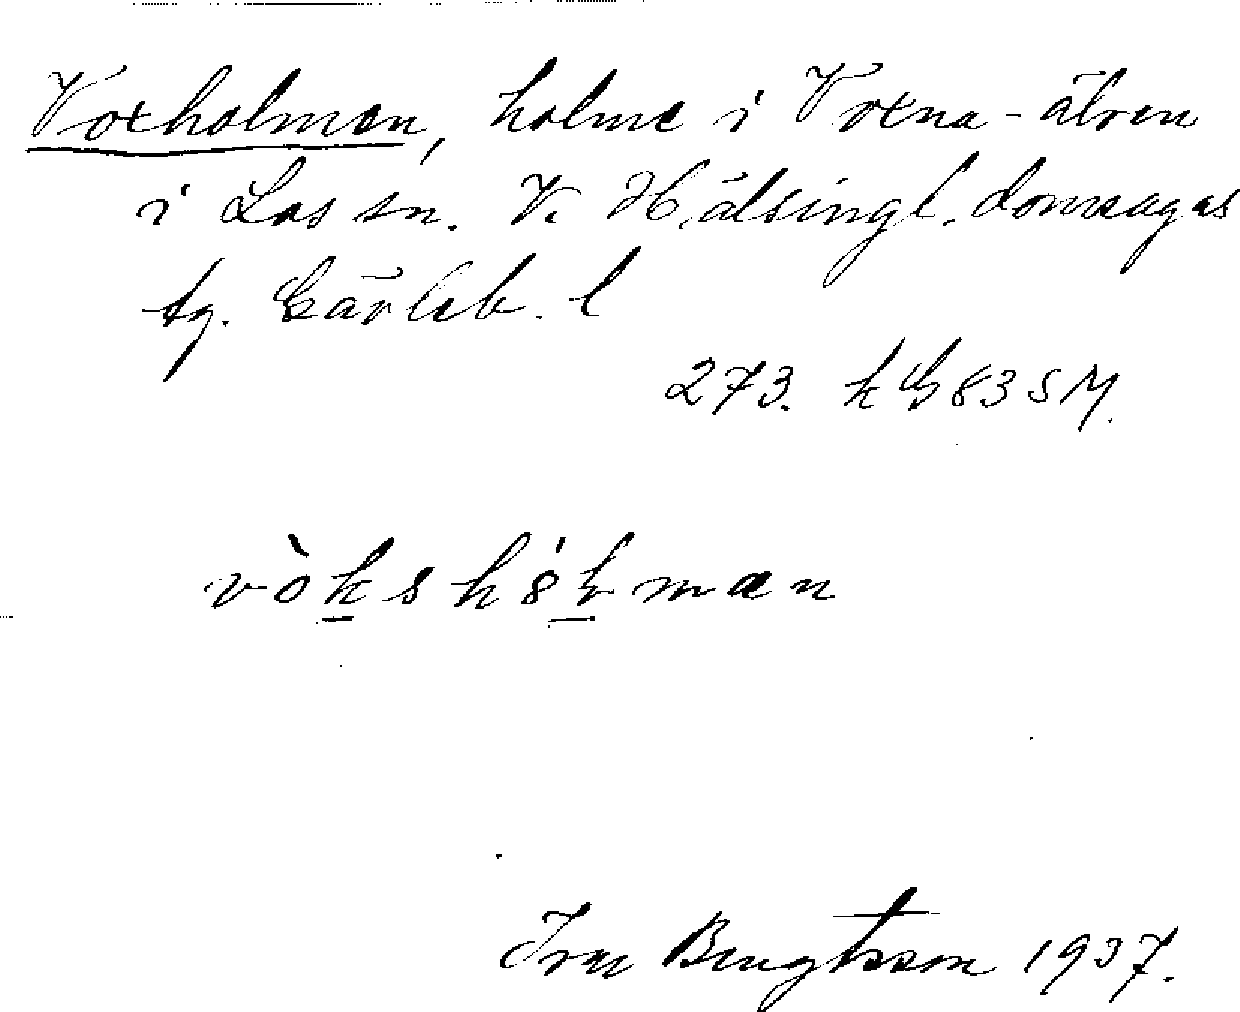 Voxholmen, holme i Voxna-älven
i Los sn. V. Hälsingl. domsagas
tg. Gävleb. l
273. k G 83 S M.
vòkshólman
Bengtsson 1937.